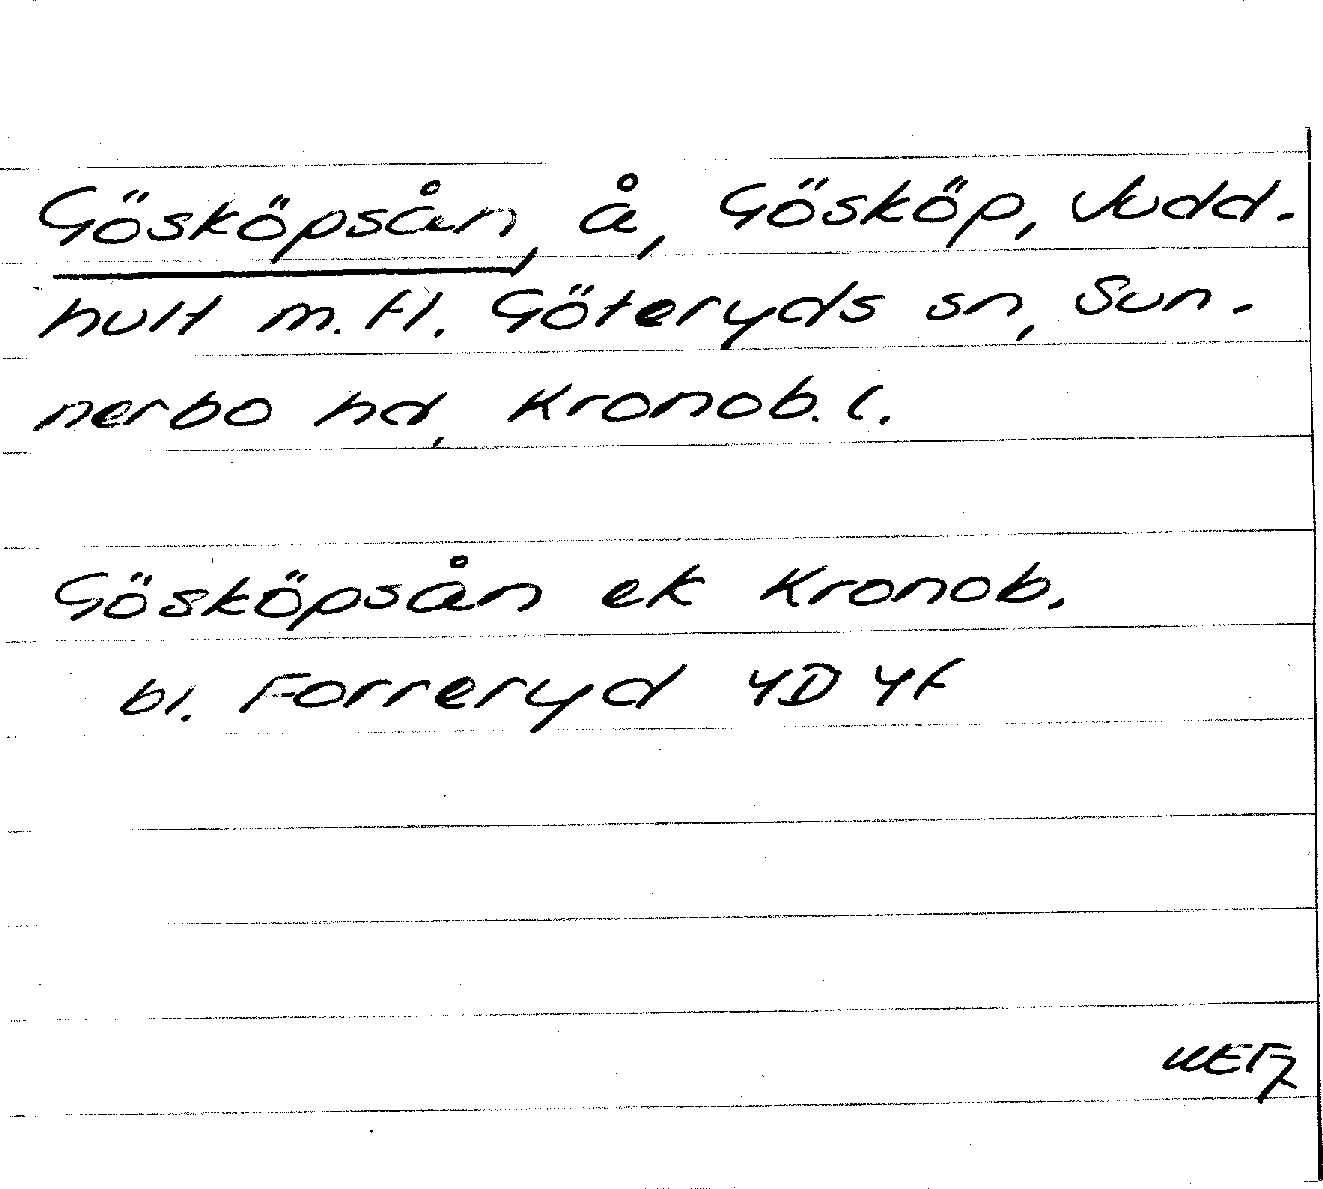 Gösköpsån, å, Gösköp, Judd-
hult m.fl. Göteryds sn, Sun-
nerbo hd, Kronob. l.
Gösköpsån ek Kronob.
bl. Forreryd 4D 4f